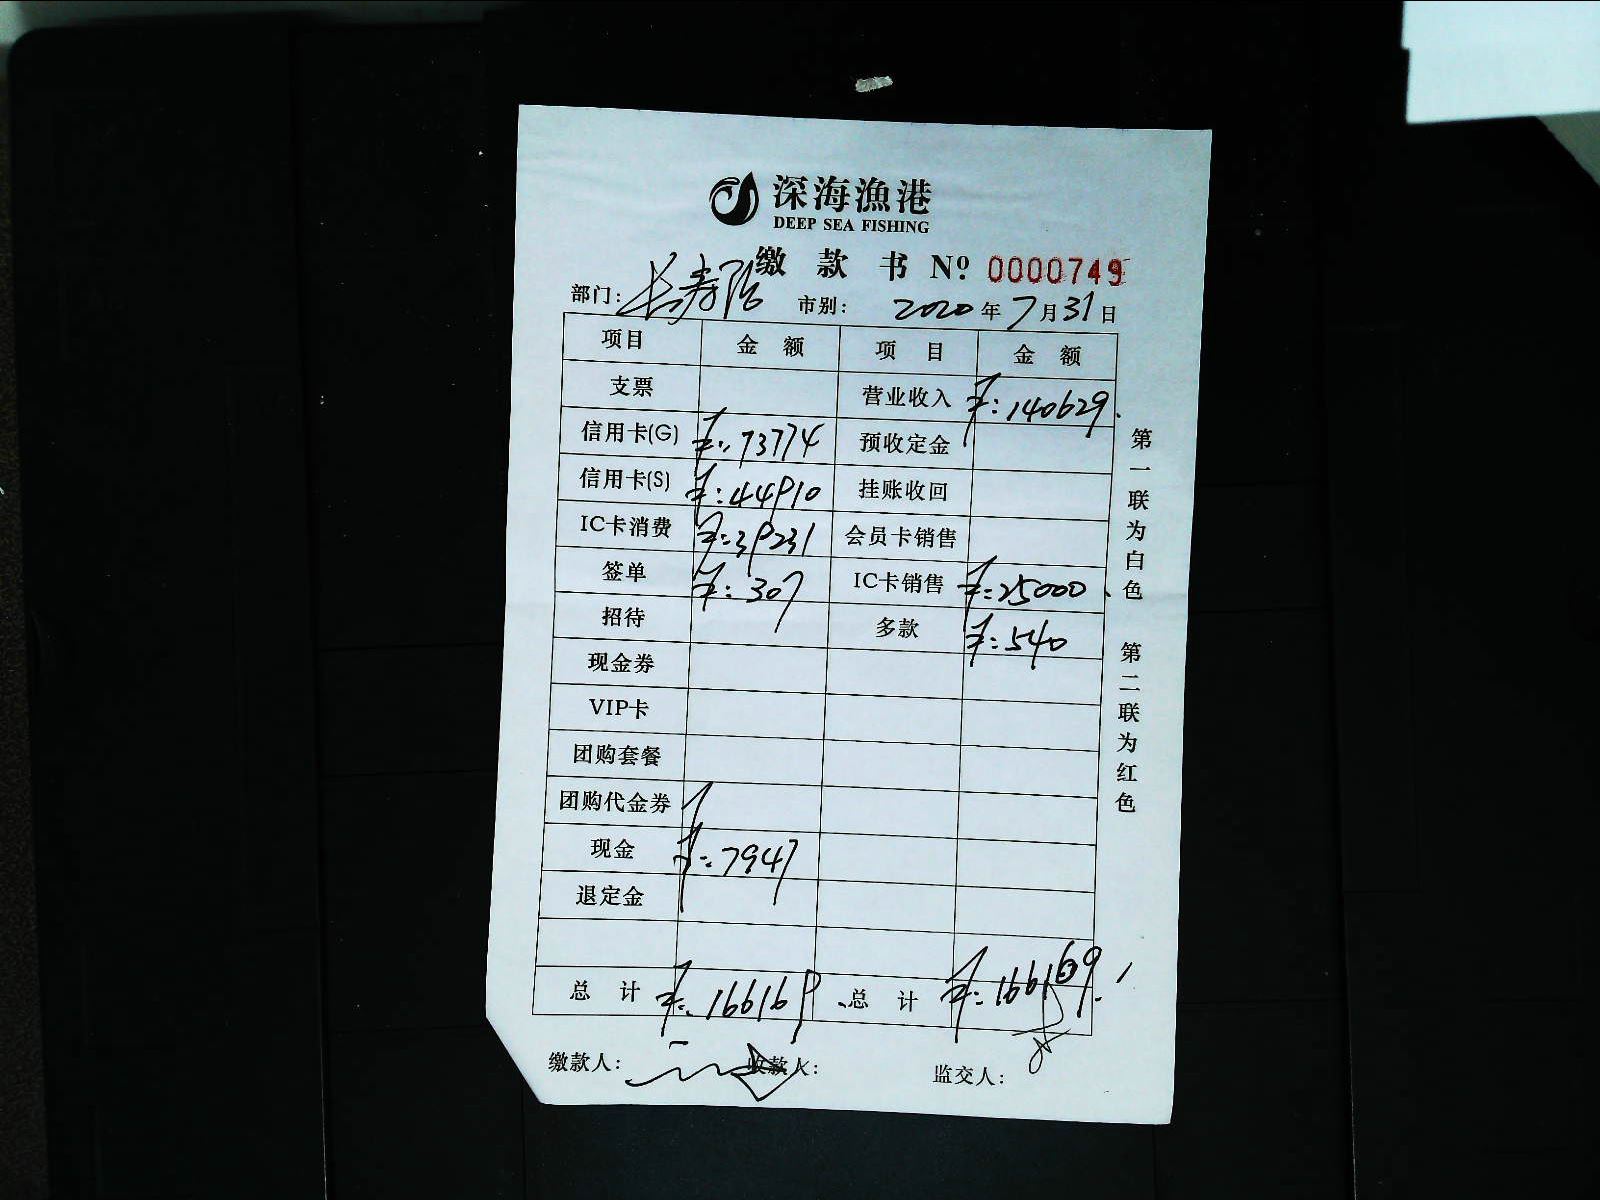 深海漁港
DEEP SEA FISHING
缴款书 Nº 0000749
部门：长寿路 市别： 2020年7月31日
项目 金额 项目 金额
支票 营业收入 ¥:140629.
信用卡(G) ¥:73774 预收定金
信用卡(S) ¥:44910 挂账收回
IC卡消费 ¥:39231 会员卡销售
签单 ¥:307 IC卡销售 ¥:25000.
招待 多款 ¥:540
现金券
VIP卡
团购套餐
团购代金券
现金 ¥:7947
退定金
总计 ¥:166169 总计 ¥:166169.
缴款人： 收款人： 监交人：
第一联为白色 第二联为红色